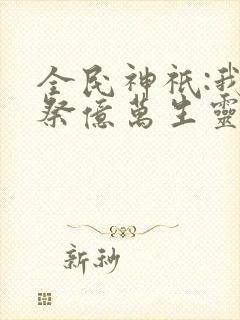 全民神祇:我
祭億萬生靈
新秒